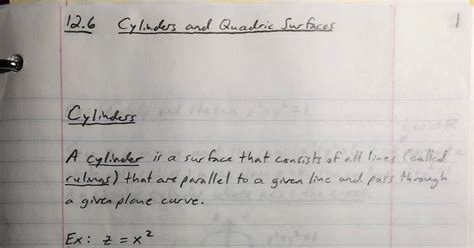 12.6 Cylinders and Quadric Surfaces 1
Cylinders
A cylinder is a surface that consists of all lines (called
rulings) that are parallel to a given line and pass through
a given plane curve.
Ex: z = x²